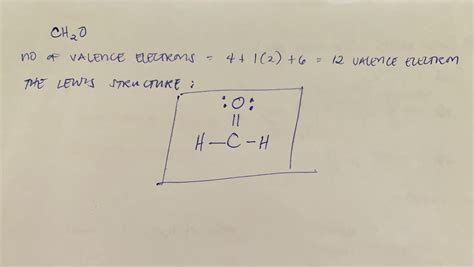 CH2O
NO OF VALENCE ELECTRONS = 4 + 1(2) + 6 = 12 VALENCE ELECTRON
THE LEWIS STRUCTURE :
:O:
||
H—C—H